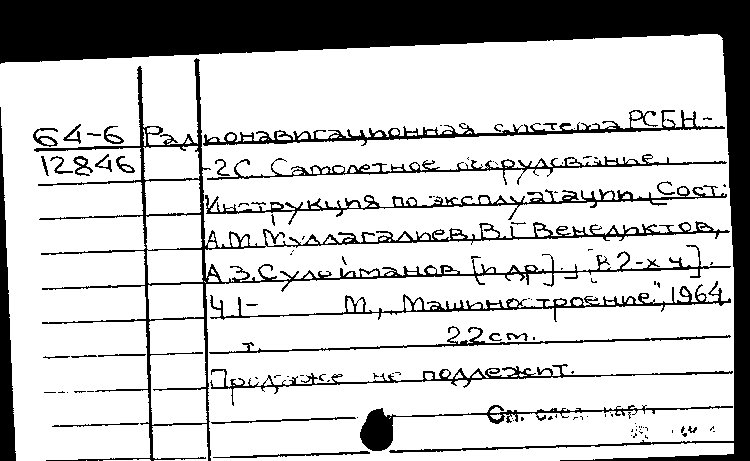 64-6 Радионавигационная система РСБН-
12846 -2С. Самолетное оборудование.
Инструкция по эксплуатации. [Сост:
А.М. Муллагалиев, В.Г. Венедиктов,
А.З. Сулейманов [и др.]. [В 2-х ч.].
Ч.1- М., "Машиностроение", 1964.
т. 22см.
Продаже не подлежит.
См. след. карт.